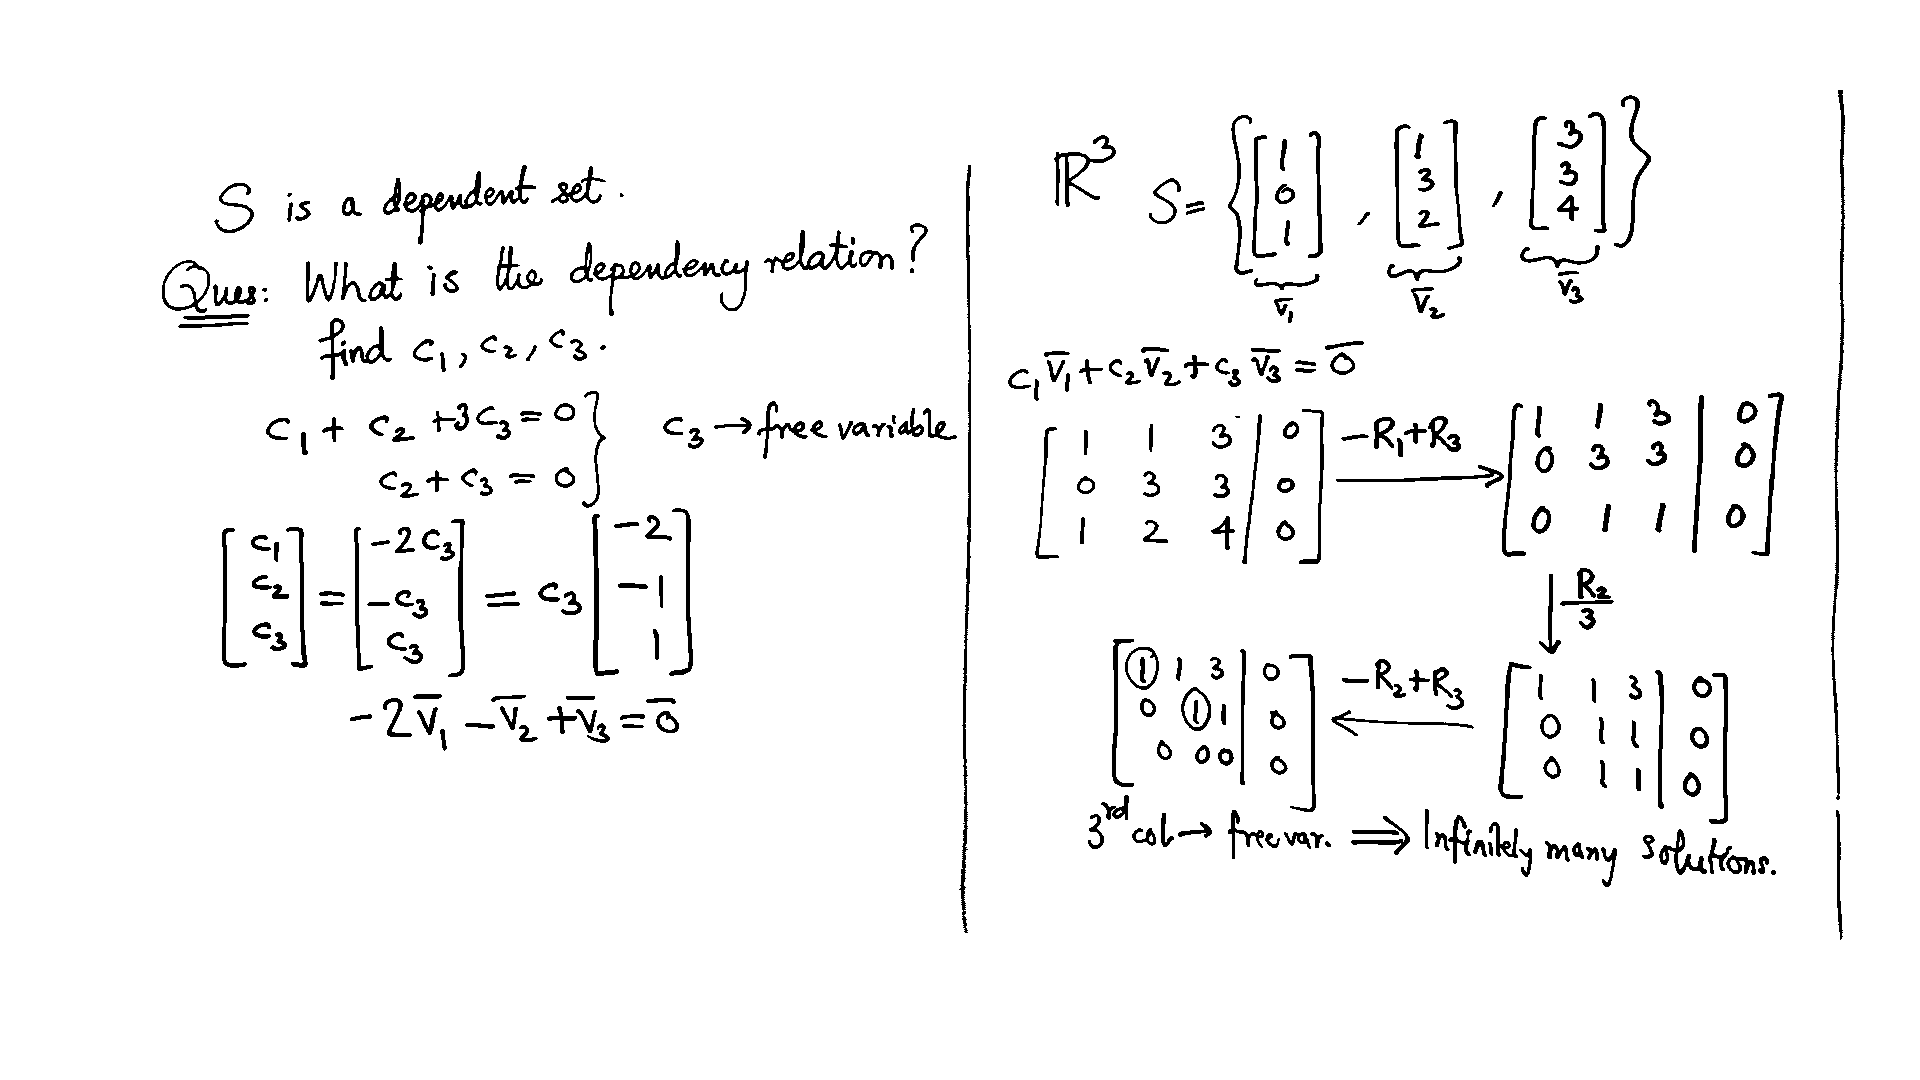 S is a dependent set.
Ques: What is the dependency relation?
find c₁, c₂, c₃.
c₁ + c₂ +3c₃ = 0
c₂ + c₃ = 0 } c₃ → free variable
[c₁ c₂ c₃] = [-2c₃ -c₃ c₃] = c₃ [-2 -1 1]
-2v̅₁ - v̅₂ + v̅₃ = 0̅
ℝ³ S = { [1 0 1], [1 3 2], [3 3 4] }
v̅₁ v̅₂ v̅₃
c₁v̅₁ + c₂v̅₂ + c₃v̅₃ = 0̅
[1 1 3 | 0] -R₁+R₃ → [1 1 3 | 0]
[0 3 3 | 0] [0 3 3 | 0]
[1 2 4 | 0] [0 1 1 | 0]
↓ R₂/3
[① 1 3 | 0] -R₂+R₃ ← [1 1 3 | 0]
[0 ① 1 | 0] [0 1 1 | 0]
[0 0 0 | 0] [0 1 1 | 0]
3rd col → free var. ⟹ Infinitely many solutions.